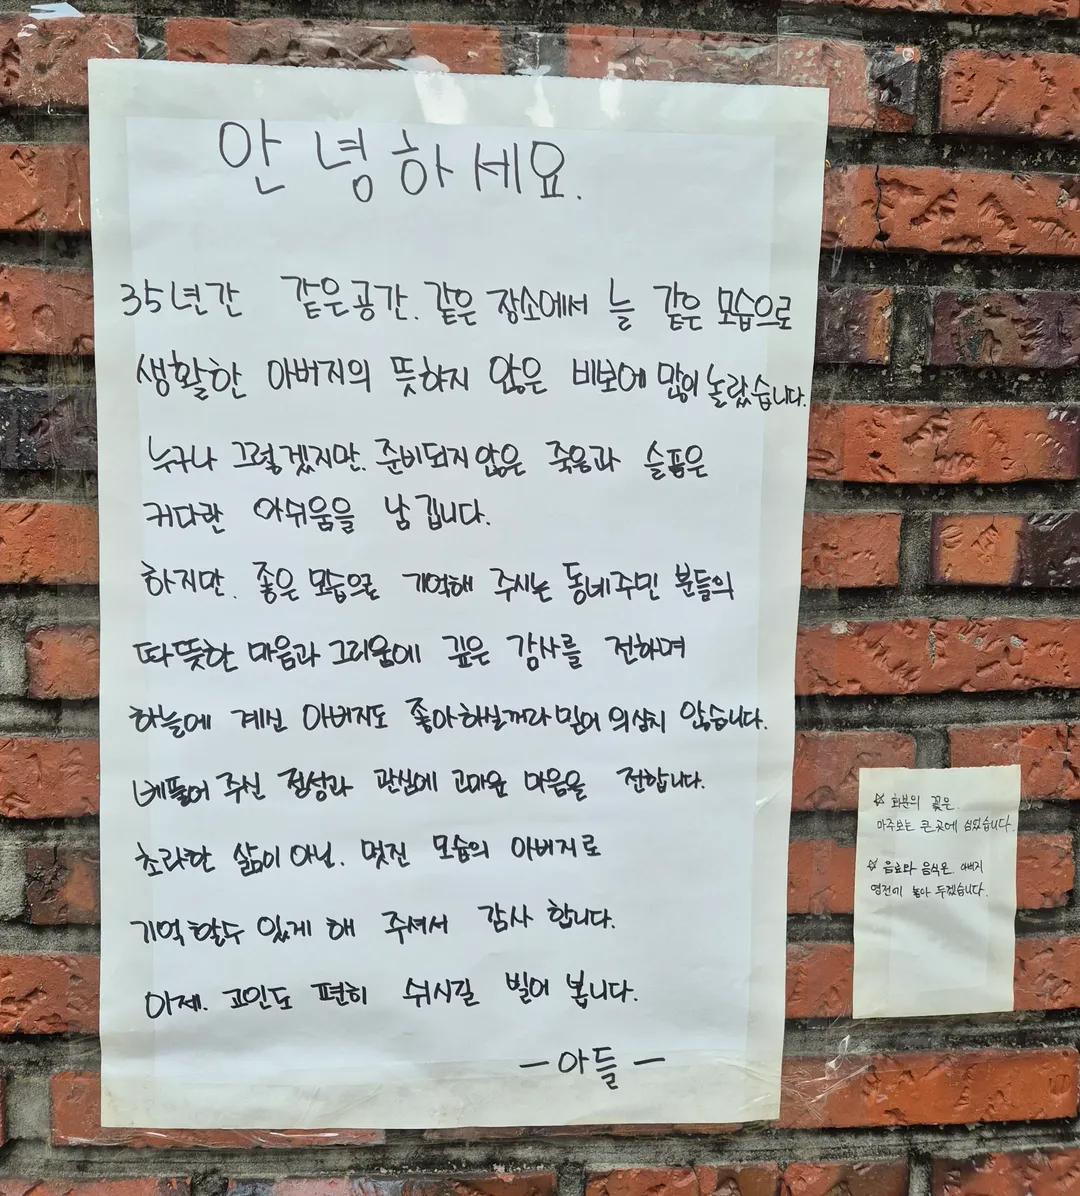 안녕하세요.
35년간 같은공간. 같은 장소에서 늘 같은 모습으로
생활한 아버지의 뜻하지 않은 비보에 많이 놀랐습니다.
누구나 그렇겠지만. 준비되지 않은 죽음과 슬픔은
커다란 아쉬움을 남깁니다.
하지만. 좋은 모습으로 기억해 주시는 동네주민 분들의
따뜻한 마음과 그리움에 깊은 감사를 전하며
하늘에 계신 아버지도 좋아하실꺼라 믿어 의심치 않습니다.
베풀어 주신 정성과 관심에 고마운 마음을 전합니다.
초라한 삶이 아닌. 멋진 모습의 아버지로
기억 할수 있게 해 주셔서 감사 합니다.
이제. 고인도 편히 쉬시길 빌어 봅니다.
- 아들 -
☆ 화분의 꽃은.
마주보는 큰곳에 심었습니다.
☆ 음료와 음식은. 아버지
영전에 놓아 두겠습니다.